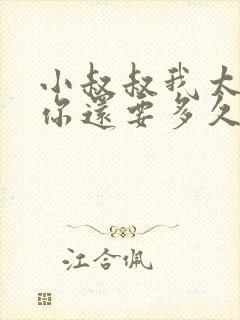 小叔叔我大
你還要多久
江合佩